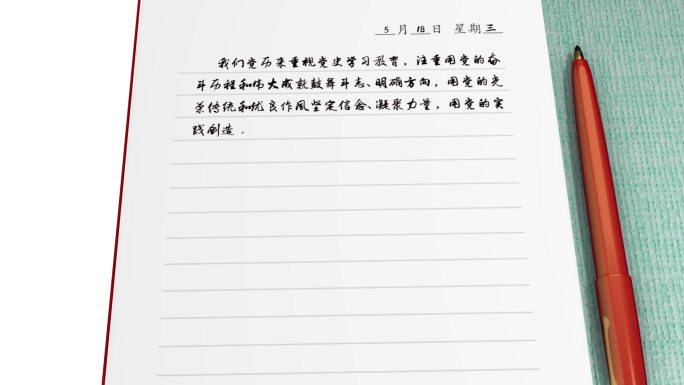 5月18日 星期三
我们党历来重视党史学习教育，注重用党的奋
斗历程和伟大成就鼓舞斗志、明确方向，用党的光
荣传统和优良作风坚定信念、凝聚力量，用党的实
践创造．